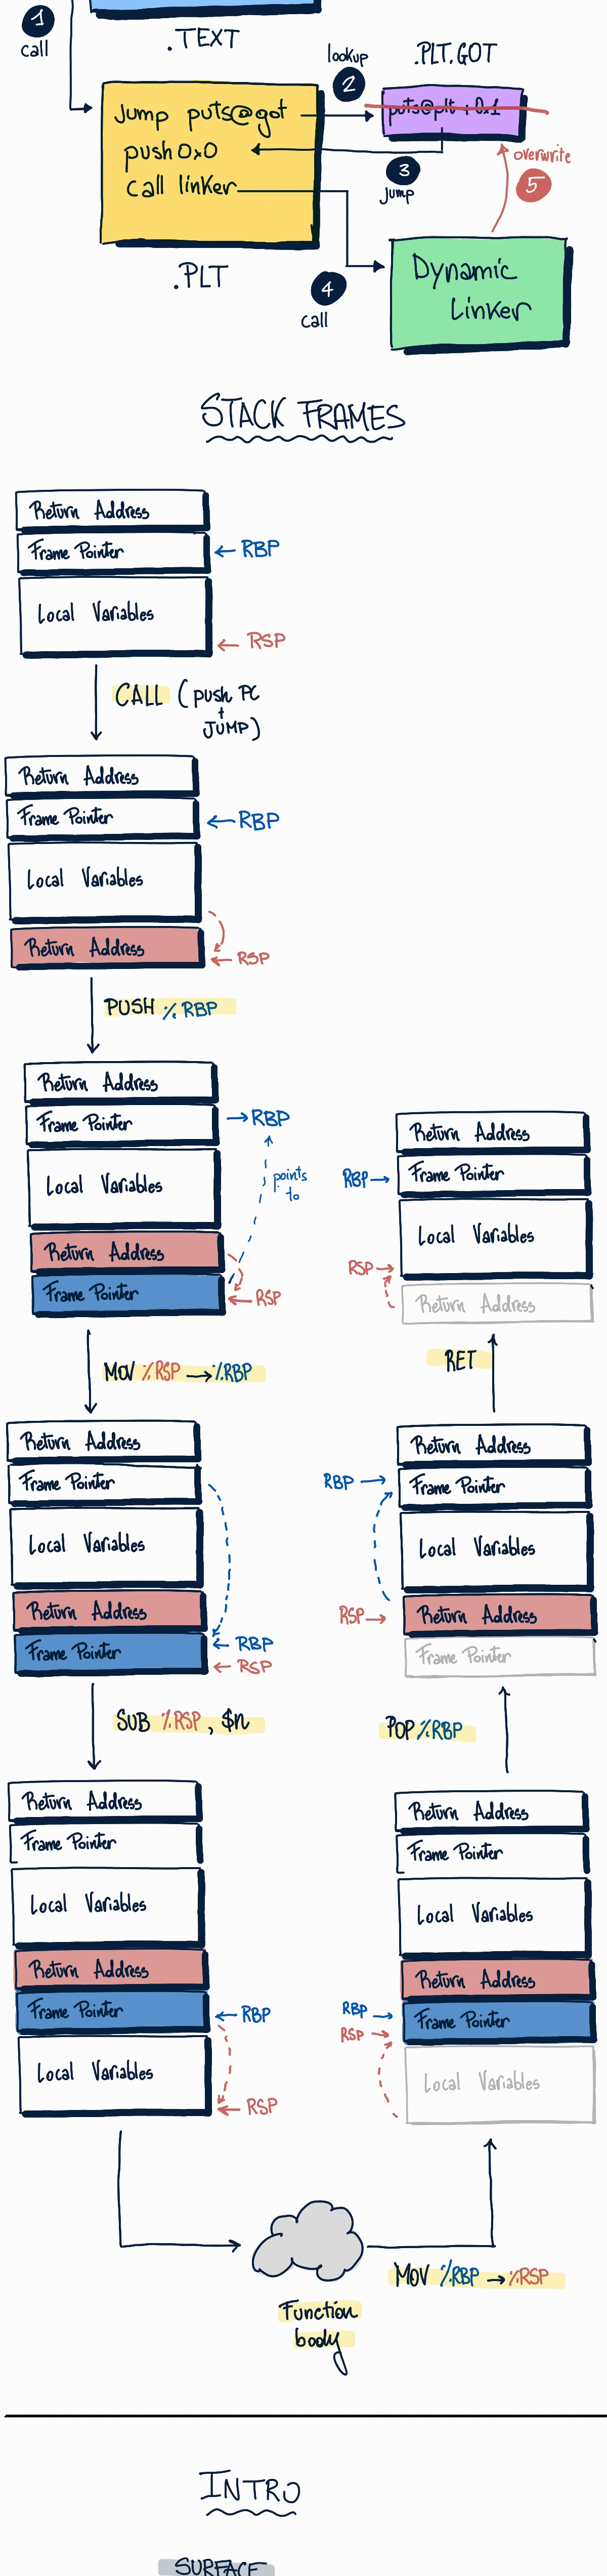 1
call
.TEXT
lookup
2
.PLT.GOT
Jump puts@got
push 0x0
call linker
puts@plt + 0x1
3
Jump
overwrite
5
.PLT
4
call
Dynamic
Linker
STACK FRAMES
Return Address
Frame Pointer
← RBP
Local Variables
← RSP
CALL (push PC
+
JUMP)
Return Address
Frame Pointer
← RBP
Local Variables
Return Address
← RSP
PUSH % RBP
Return Address
Frame Pointer
→ RBP
Local Variables
points
to
Return Address
Frame Pointer
← RSP
MOV %RSP → %RBP
Return Address
Frame Pointer
Local Variables
Return Address
Frame Pointer
← RBP
← RSP
SUB %RSP, $n
Return Address
Frame Pointer
Local Variables
Return Address
Frame Pointer
← RBP
Local Variables
← RSP
Function
body
MOV %RBP → %RSP
Return Address
Frame Pointer
Local Variables
Return Address
RBP →
RSP →
Frame Pointer
Local Variables
POP %RBP
Return Address
RBP →
Frame Pointer
Local Variables
RSP →
Return Address
Frame Pointer
RET
Return Address
RBP →
Frame Pointer
Local Variables
RSP →
Return Address
INTRO
SURFACE